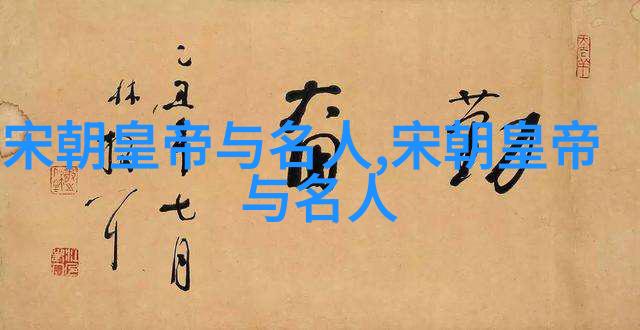 宋朝皇帝与名人,宋朝皇帝
与名人
勤奋
乙丑年七月
林